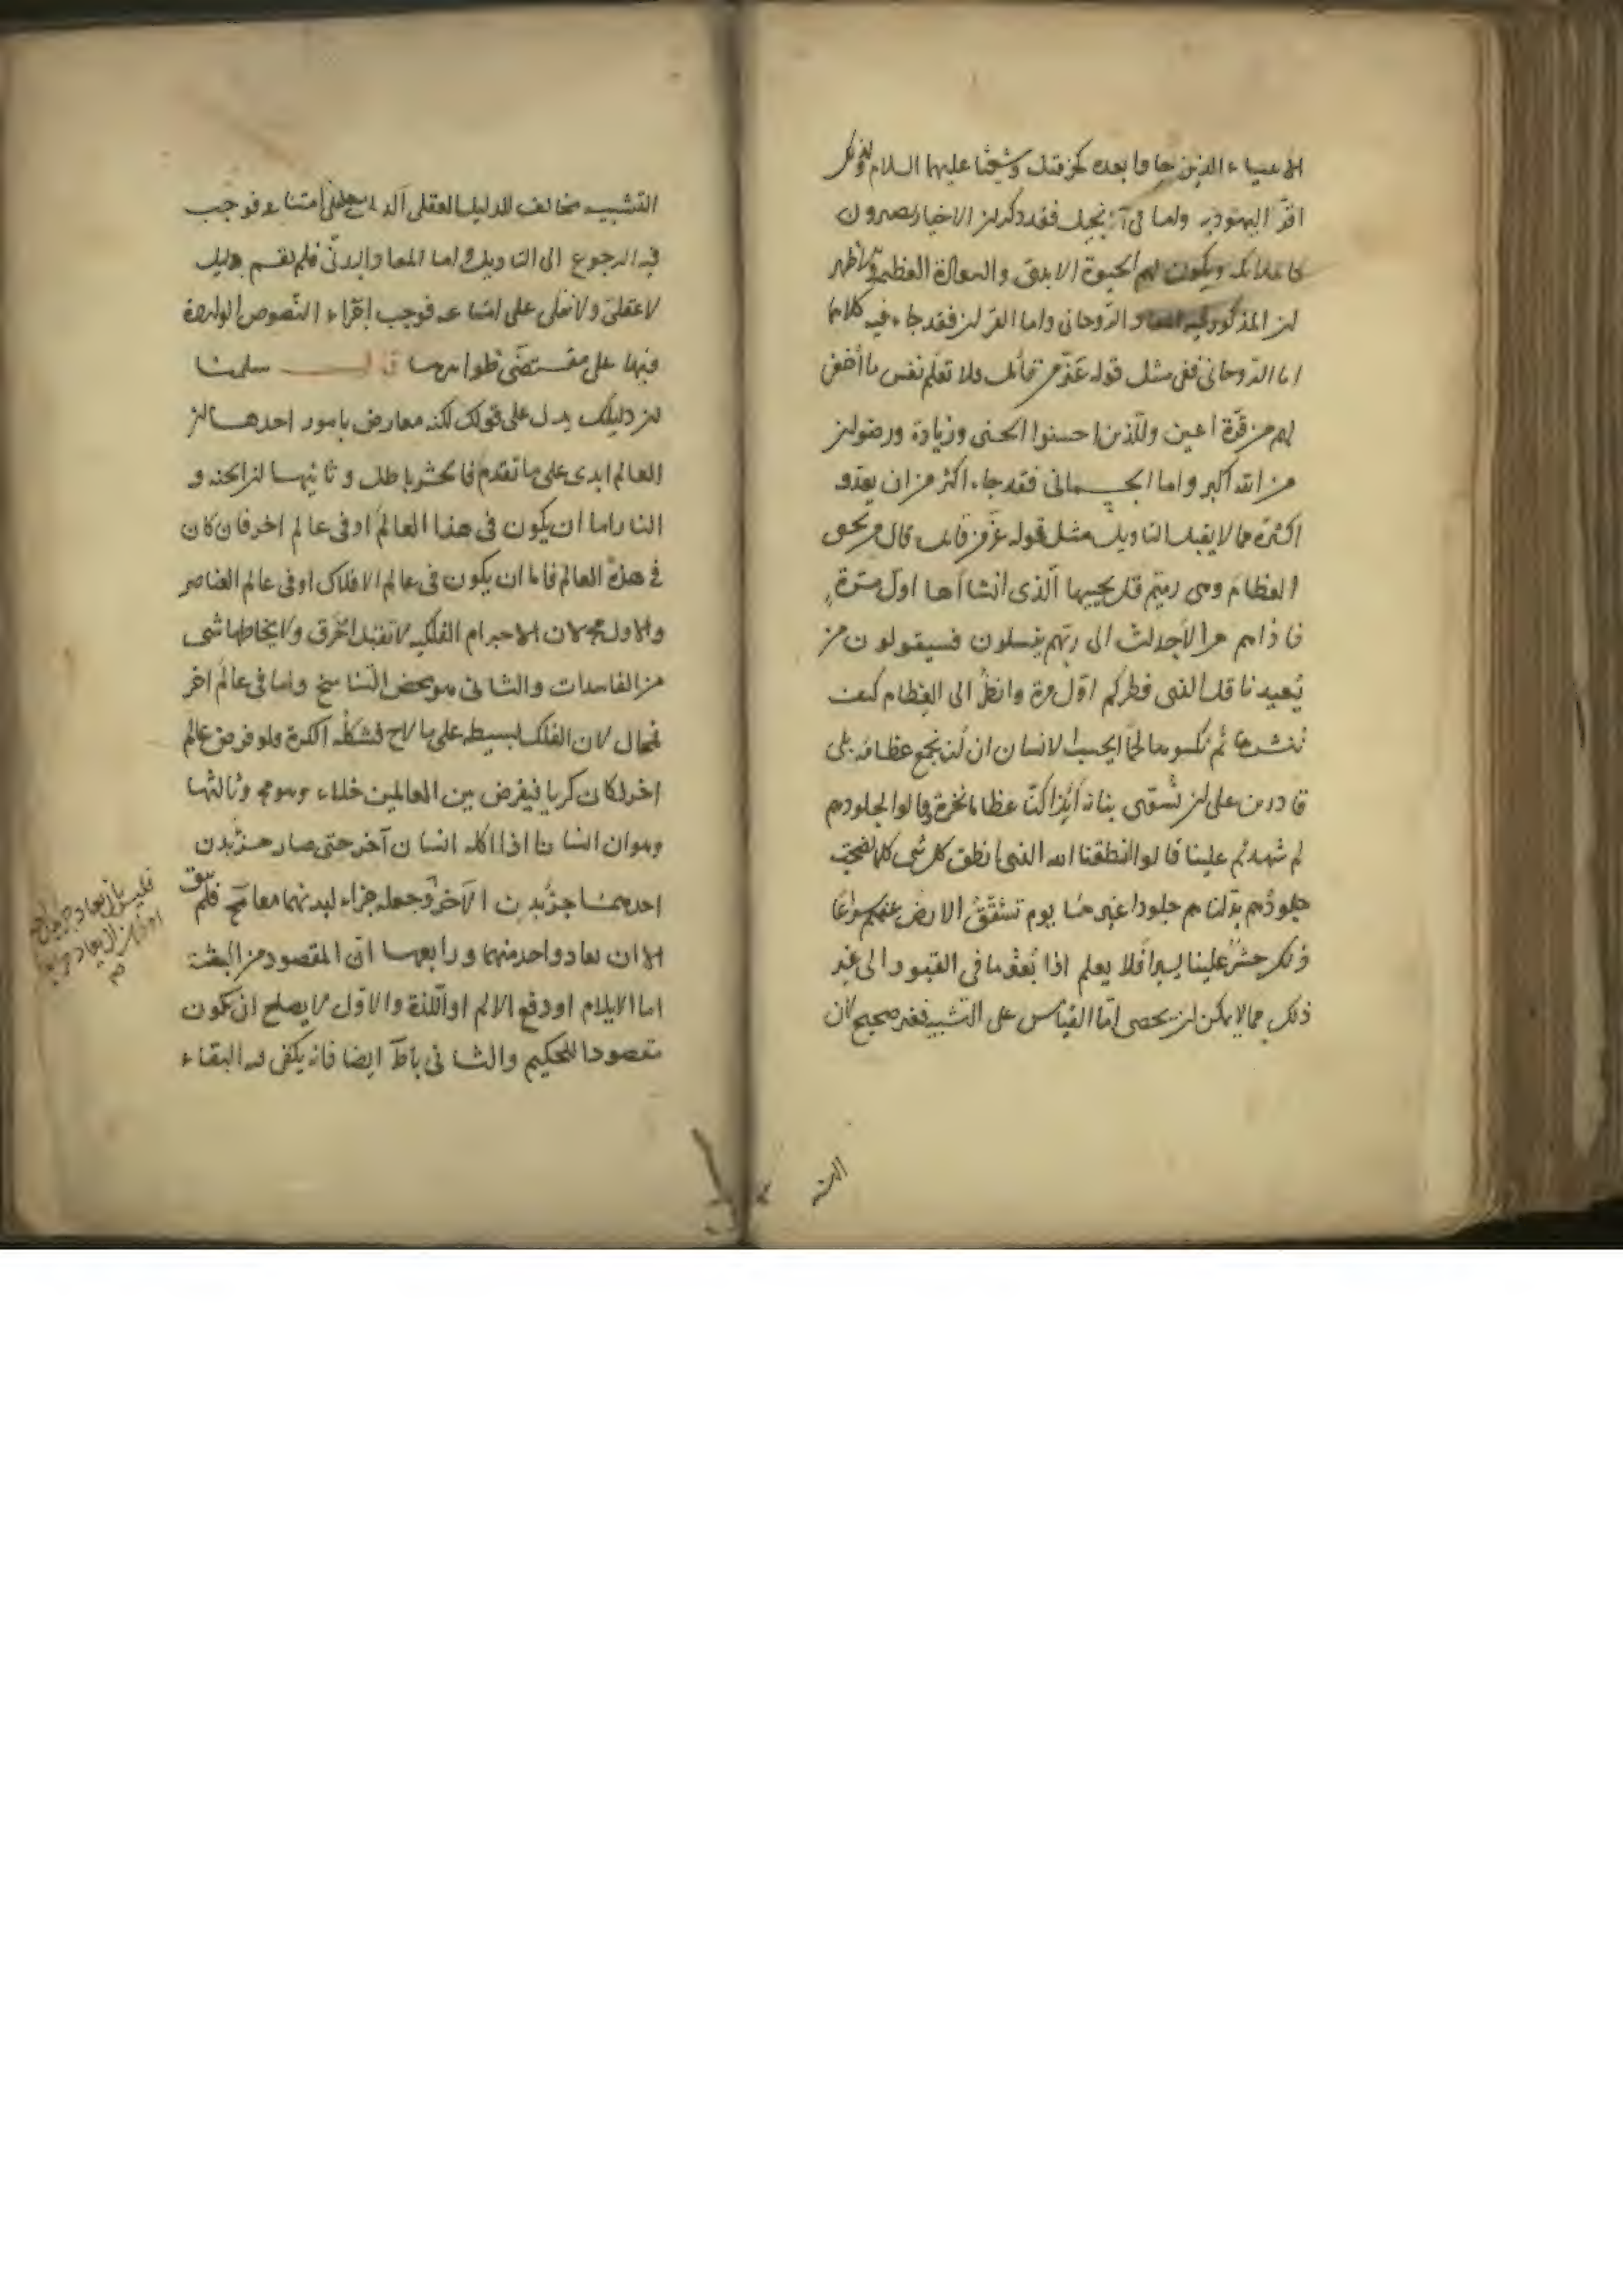 الانبياء الذين جاؤا بعده كحزقيل وشعيا عليهما السلام ولذلك
اقرّ اليهود به واما فى الانجيل فقد ذكر ان الاخيار يصيرون
كالملائكة ويكون لهم الحيوة الابدية والسعادة العظيمة والاظهر
ان المذكور فيه المعاد الروحانى واما القران فقد جاء فيه كلاهما
اما الروحانى ففى مثل قوله عز من قائل فلا تعلم نفس ما اخفى
لهم من قرة اعين وللذين احسنوا الحسنى وزيادة ورضوان
من الله اكبر واما الجسمانى فقد جاء اكثر من ان يعد و
اكثره مما لا يقبل التاويل مثل قوله عز من قائل قال من يحيى
العظام وهى رميم قل يحييها الذى انشأها اول مرة
فاذا هم من الاجداث الى ربهم ينسلون فسيقولون من
يعيدنا قل الذى فطركم اول مرة وانظر الى العظام كيف
ننشزها ثم نكسوها لحما ايحسب الانسان ان لن نجمع عظامه بلى
قادرين على ان نسوى بنانه أئذا كنا عظاما نخرة وقالوا لجلودهم
لم شهدتم علينا قالوا انطقنا الله الذى انطق كل شى كلما نضجت
جلودهم بدلناهم جلودا غيرها يوم تشقق الارض عنهم سراعا
ذلك حشر علينا يسير افلا يعلم اذا بعثر ما فى القبور الى غير
ذلك مما لا يمكن ان يحصى اما القياس على التشبيه فغير صحيح لان
التشبيه مخالف للدليل العقلى الدال على امتناعه فوجب
فيه الرجوع الى التاويل واما المعاد البدنى فلم يقم دليل
لا عقلى ولا نقلى على امتناعه فوجب اجراء النصوص الواردة
فيها على مقتضى ظواهرها قال سلمنا
ان دليلك يدل على قولك لكنه معارض بامور احدها ان
العالم ابدى على ما تقدم فالحشر باطل وثانيها ان الجنه و
النار اما ان يكون فى هذا العالم او فى عالم اخر فان كان
فى هذه العالم فاما ان يكون فى عالم الافلاك او فى عالم العناصر
والاول مح لان الاجرام الفلكيه لا تقبل الخرق ولا يخالطها شى
من الفاسدات والثانى هو محض التناسخ واما فى عالم اخر
فمحال لان الفلك بسيط على ما لاح فشكله الكرة ولو فرض عالم
اخر لكان كريا فيفرض بين العالمين خلاء وهو مح وثالثها
وهو ان انسانا اذا اكله انسان آخر حتى صار جزء بدن
احدهما جزء بدن الآخر وجعله جزاء لبدنهما معا مح فلم يبق
الا ان يعاد واحد منهما ورابعها ان المقصود من البعثة
اما الايلام او دفع الالم او اللذة والاول لا يصلح ان يكون
مقصودا للحكيم والثانى باطل ايضا فانه يكفى فيه البقاء